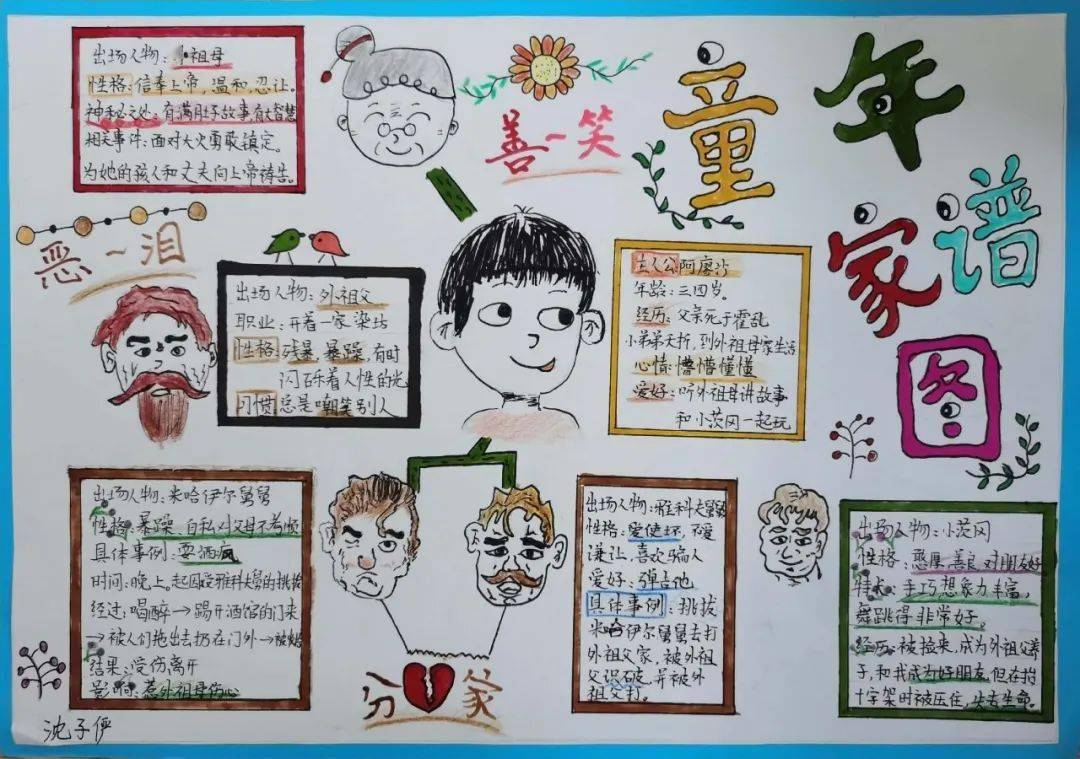 童年
家谱
图
出场人物：外祖母
性格：信奉上帝，温和，忍让。
神秘之处：有满肚子故事，有大智慧
相关事件：面对大火勇敢镇定。
为她的孩人和丈夫向上帝祷告。
善一笑
恶一泪
出场人物：外祖父
职业：开着一家染坊
性格：残暴，暴躁，有时
闪烁着人性的光
习惯：总是嘲笑别人
主人公：阿廖沙
年龄：三四岁。
经历：父亲死于霍乱
小弟弟夭折，到外祖母家生活
心情：懵懵懂懂
爱好：听外祖母讲故事
和小茨冈一起玩
出场人物：米哈伊尔舅舅
性格：暴躁、自私对父母不孝顺
具体事例：耍酒疯
时间：晚上。起因受雅科夫舅的挑拔
经过：喝醉→踢开酒馆的门来
→被人们拖出去扔在门外→被
结果：受伤离开
影响：惹外祖母伤心
分家
出场人物：雅科夫舅舅
性格：爱使坏，不爱
谦让，喜欢骗人
爱好：弹吉他
具体事例：挑拔
米哈伊尔舅舅去打
外祖父家，被外祖
父识破，并被外
祖父打
出场人物：小茨冈
性格：憨厚，善良，对朋友好
特长：手巧，想象力丰富，
舞跳得非常好。
经历：被捡来，成为外祖父养
子，和我成为好朋友，但在抬
十字架时被压住，失去生命。
沈子俨